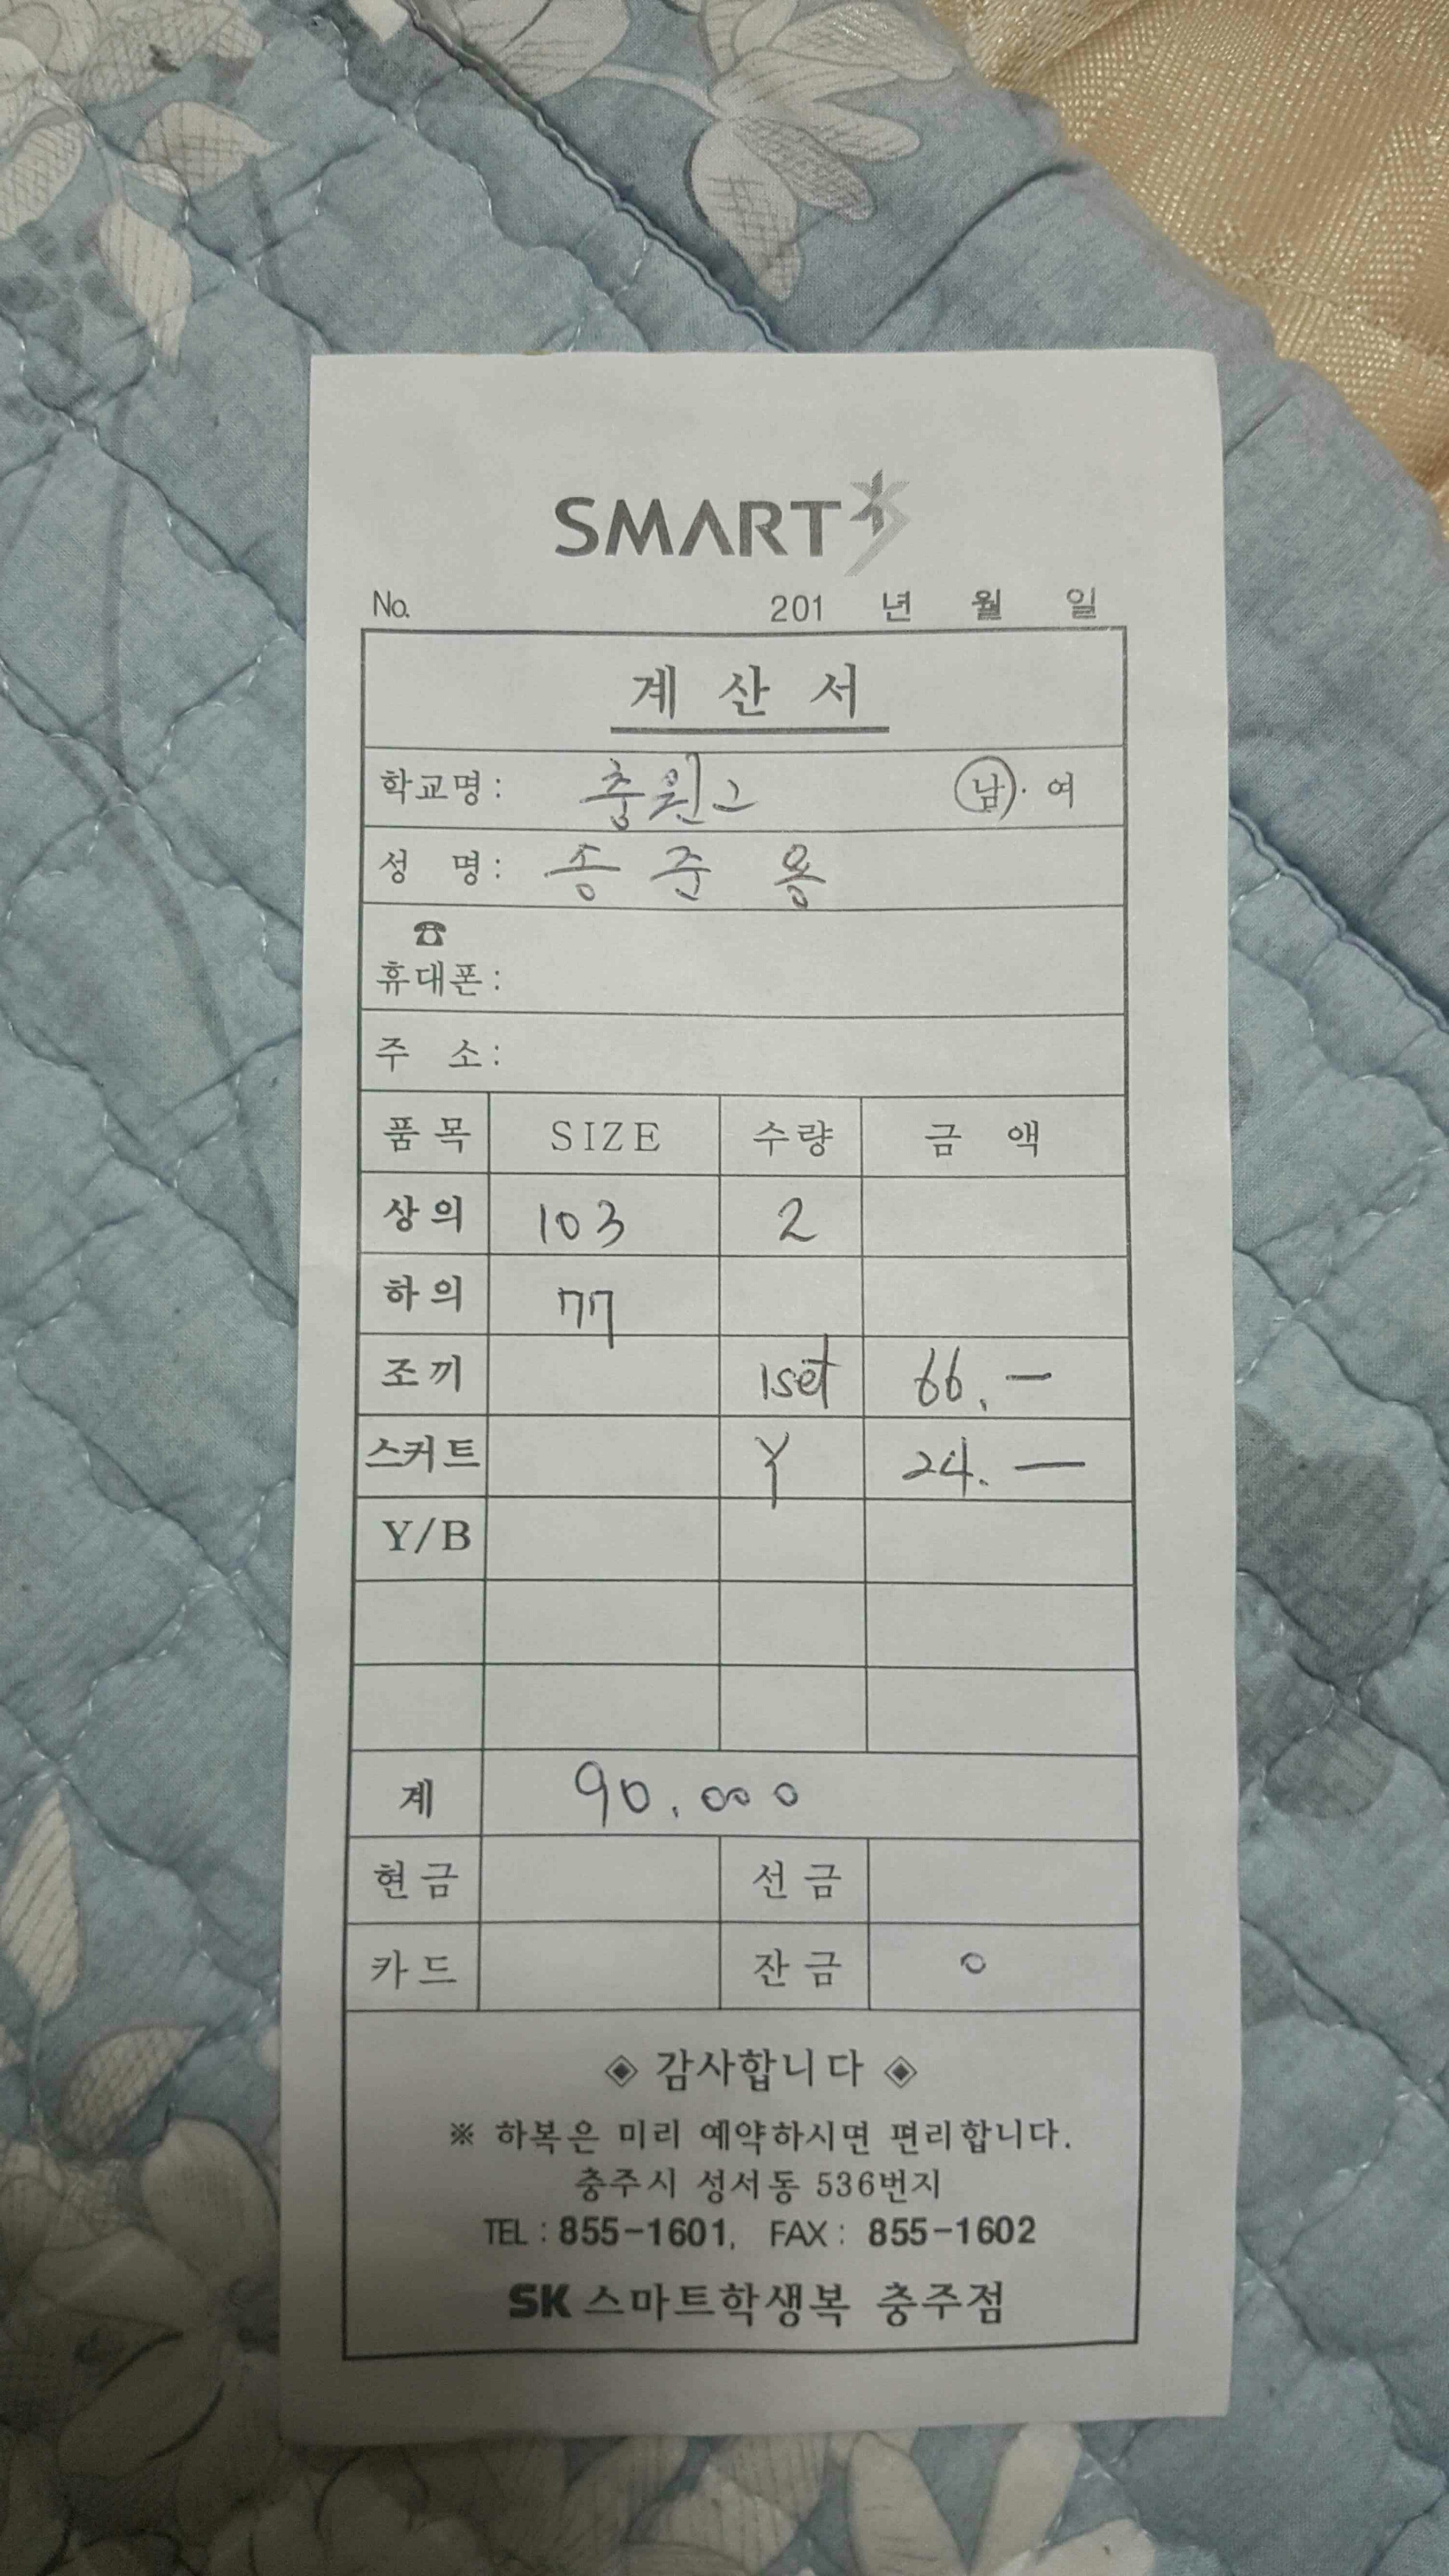 SMART
No. 201 년 월 일
계 산 서
학교명: 충원고 남·여
성 명: 송 준 용
휴대폰:
주 소:
품목 SIZE 수량 금 액
상의 103 2
하의 77
조끼 1set 66.—
스커트 Y 24.—
Y/B
계 90.000
현금 선금
카드 잔금 0
◈ 감사합니다 ◈
※ 하복은 미리 예약하시면 편리합니다.
충주시 성서동 536번지
TEL : 855-1601, FAX : 855-1602
SK 스마트학생복 충주점